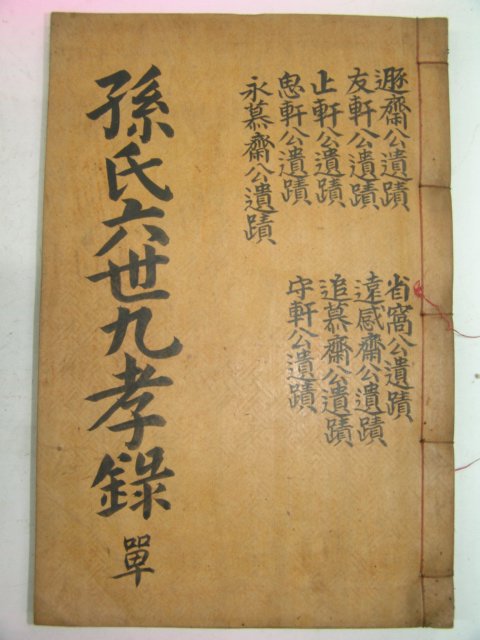 孫氏六世九孝錄 單
遯齋公遺蹟
友軒公遺蹟
止軒公遺蹟
思軒公遺蹟
永慕齋公遺蹟
省窩公遺蹟
遠感齋公遺蹟
追慕齋公遺蹟
守軒公遺蹟